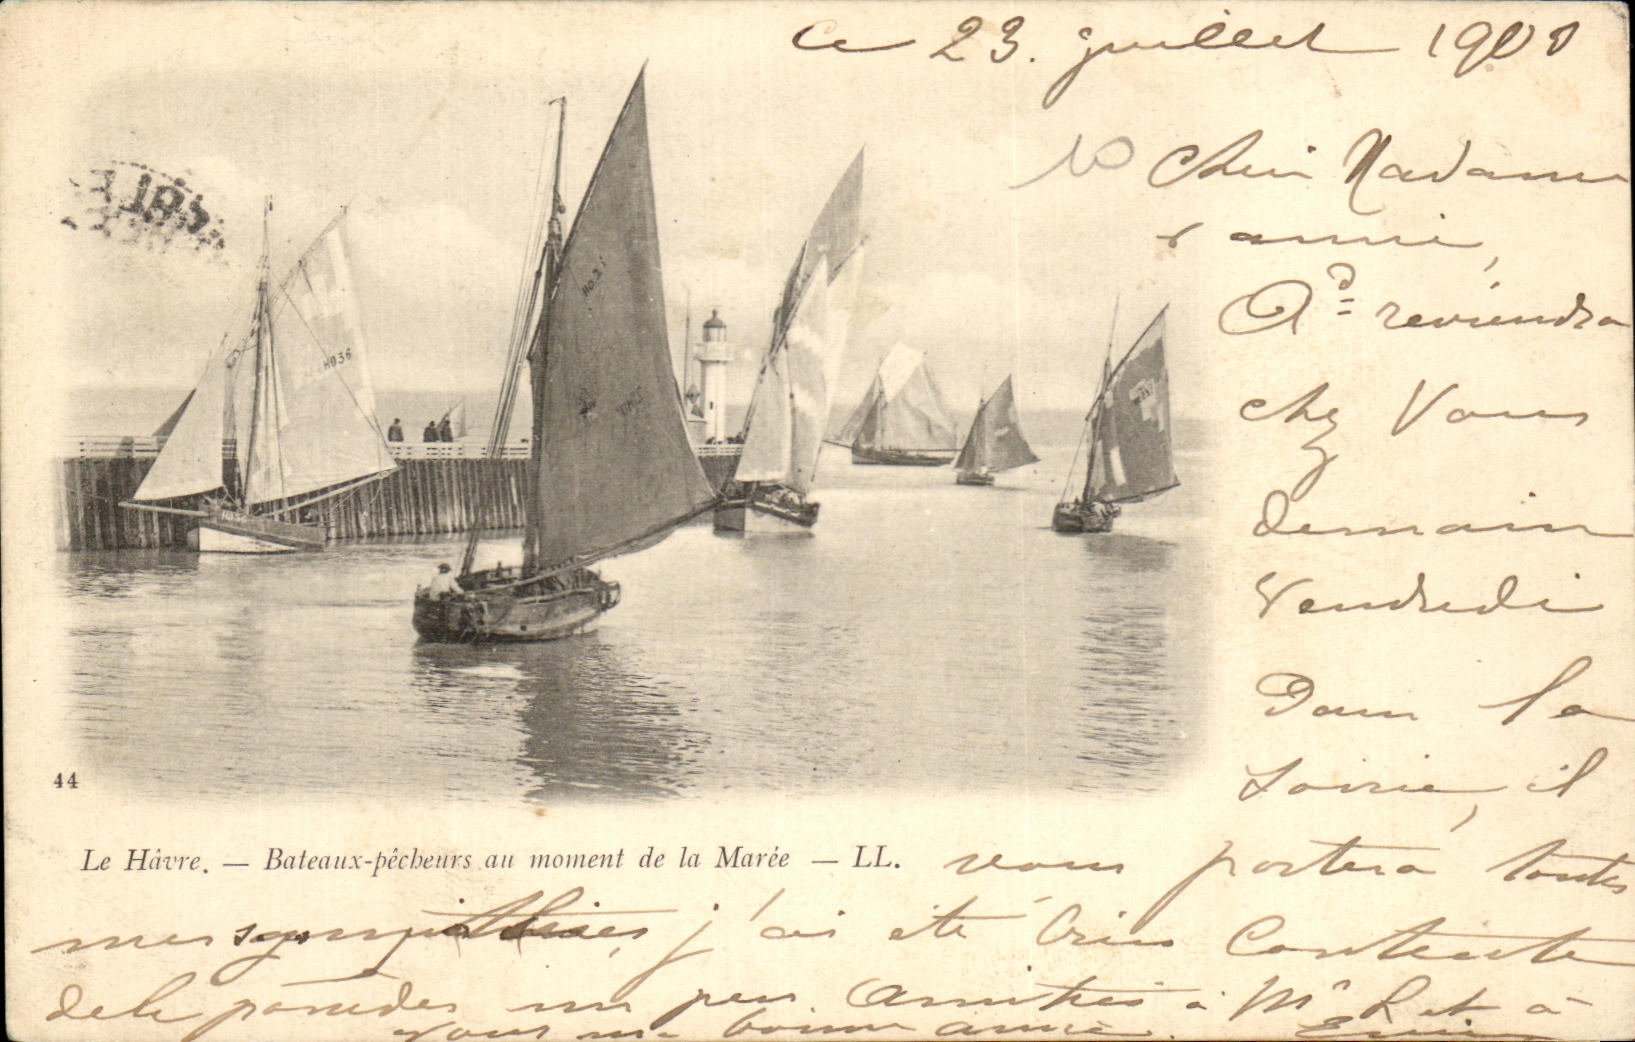 ce 23. juillet 1901
Chère Madame
& amie,
Ad = reviendra
chez Vous
demain
Vendredi
Dans la
soirée, il
HO36
HO.21
44
Le Hâvre. — Bateaux-pêcheurs au moment de la Marée — LL.
vous portera toutes
mes sympathies, j'ai été bien Contente
de le posséder un peu. Amitiés à Mr L et à
vous ma bonne amie.